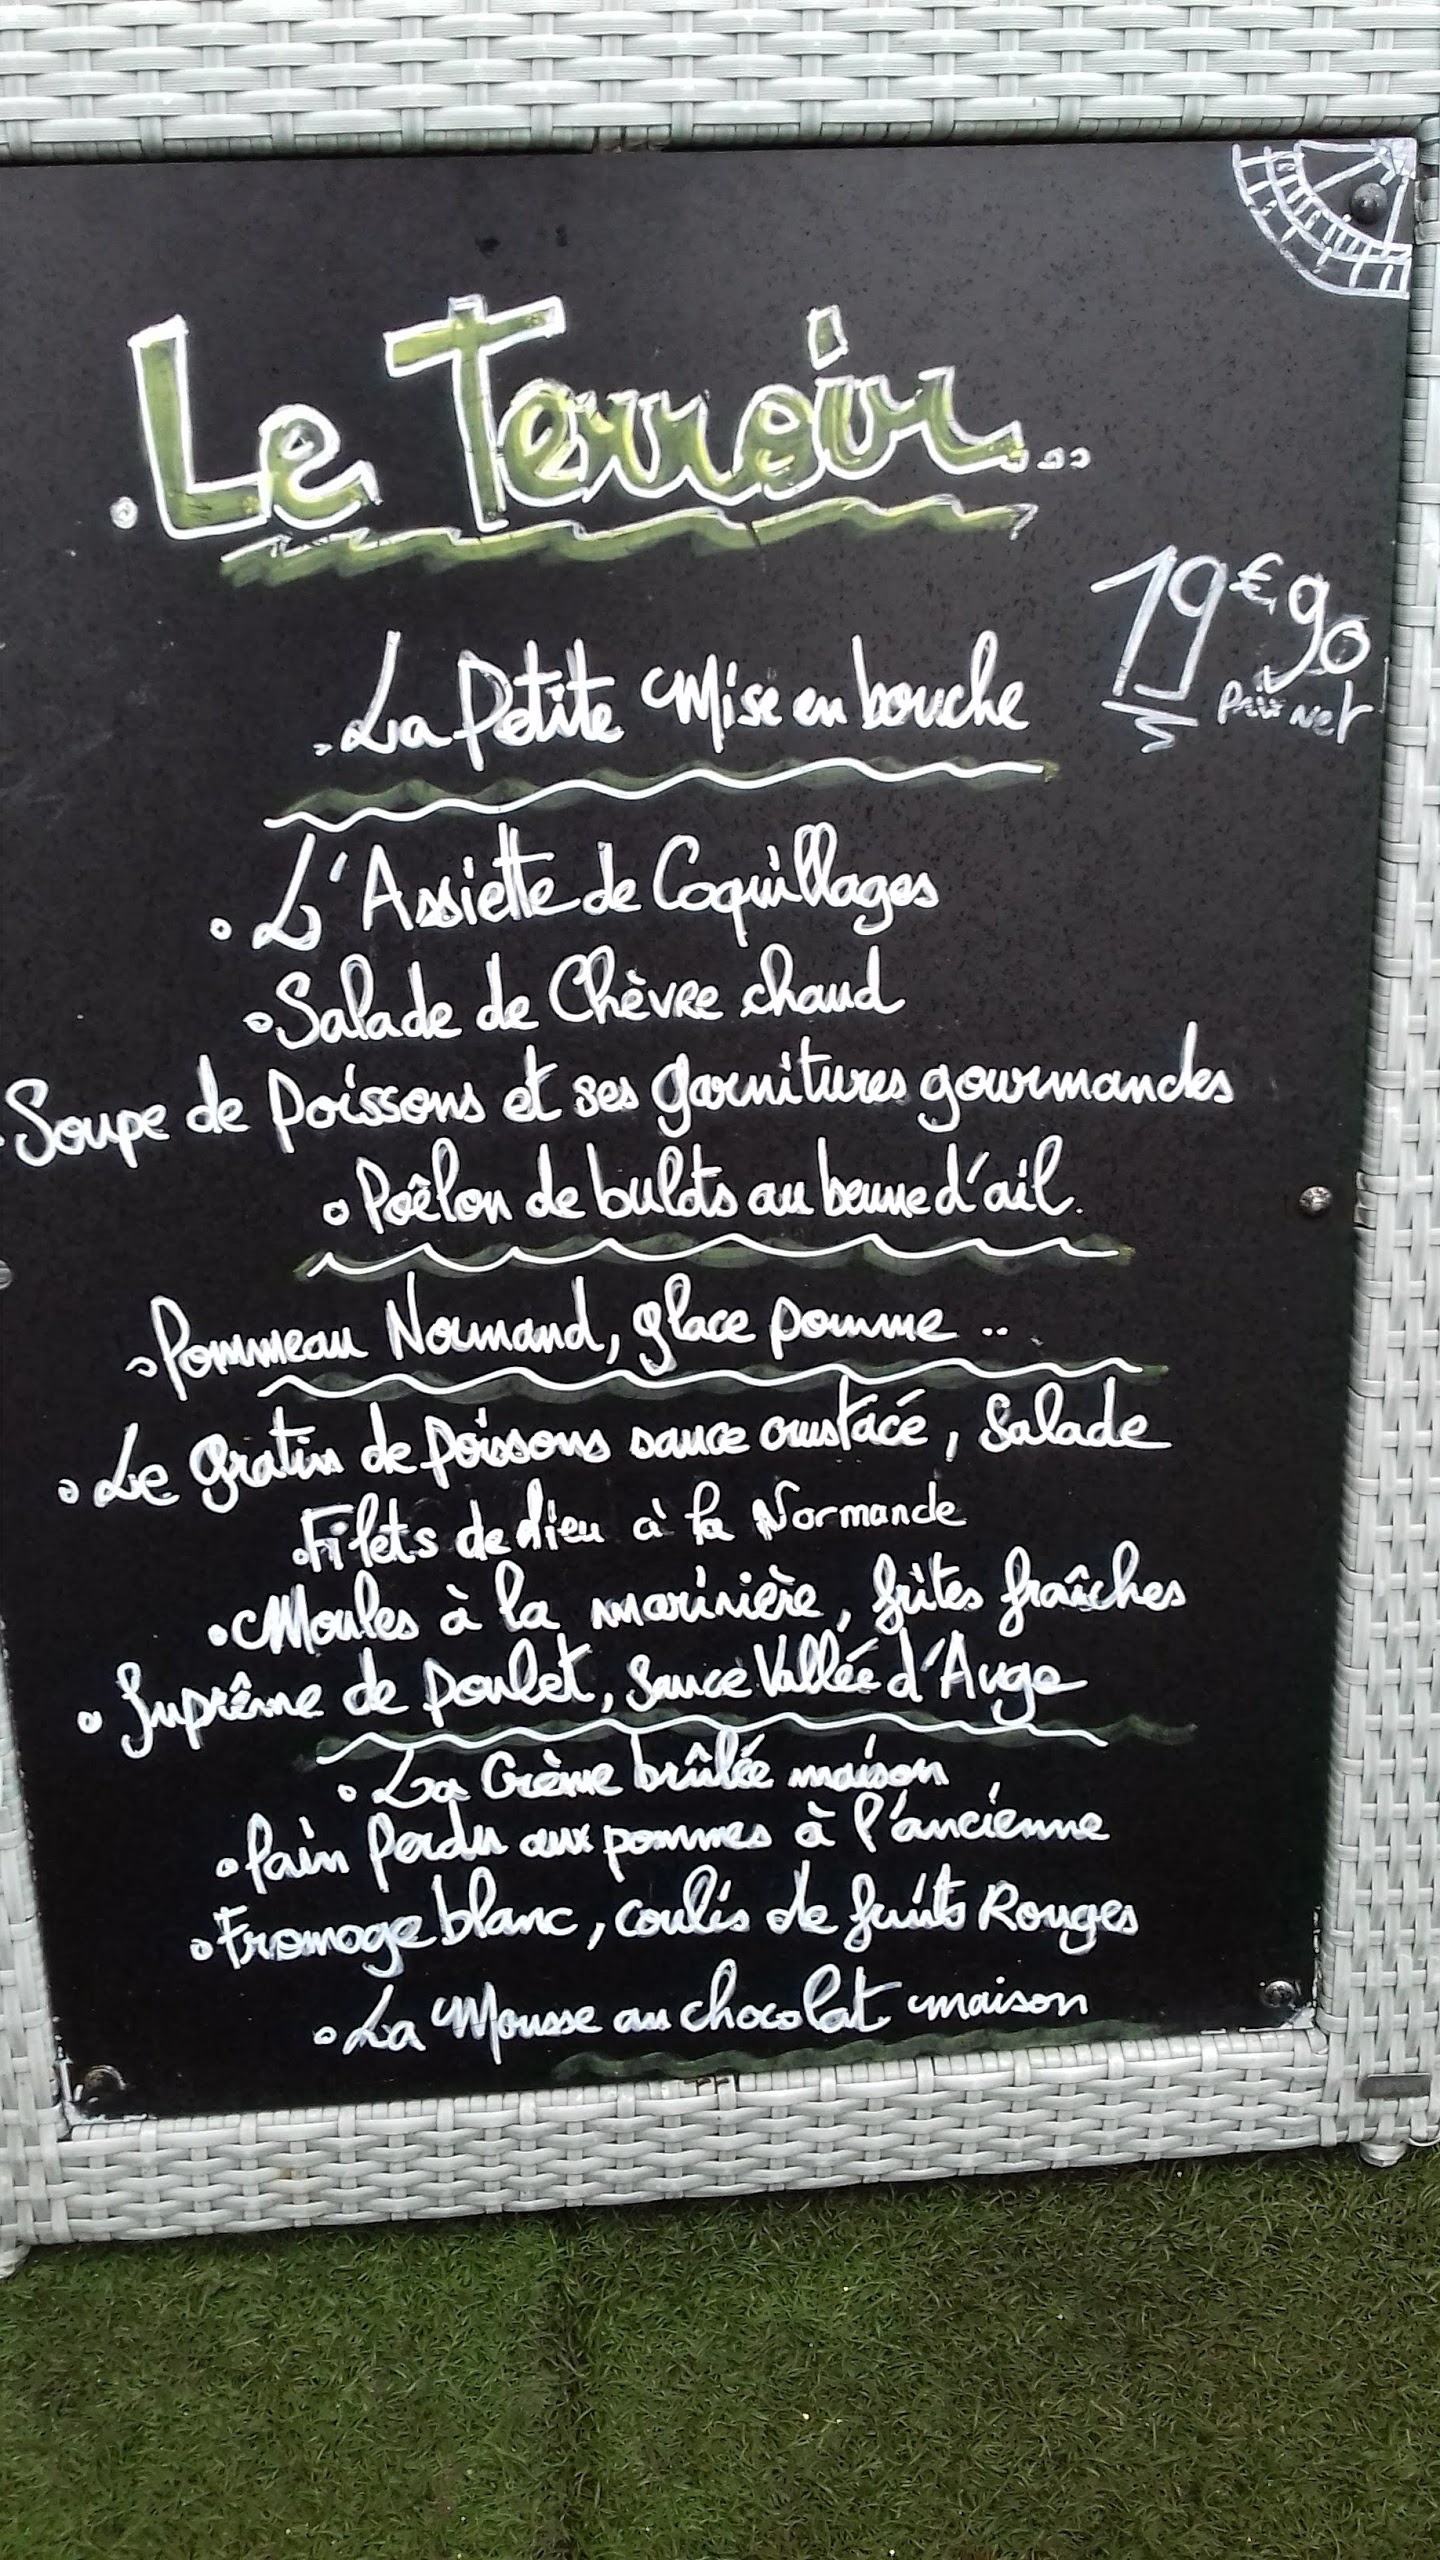 Le Terroir...
19€90
Prix net
La Petite Mise en bouche
L'Assiette de Coquillages
Salade de Chèvre chaud
Soupe de Poissons et ses garnitures gourmandes
Poêlon de bulots au beurre d'ail.
Pommeau Normand, glace pomme ..
Le gratin de poissons sauce crustacé, Salade
Filets de lieu à la Normande
Moules à la marinière, frites fraîches
Suprême de poulet, Sauce Vallée d'Auge
La Crème brûlée maison
Pain Perdu aux pommes à l'ancienne
Fromage blanc, coulis de fruits Rouges
La Mousse au chocolat maison